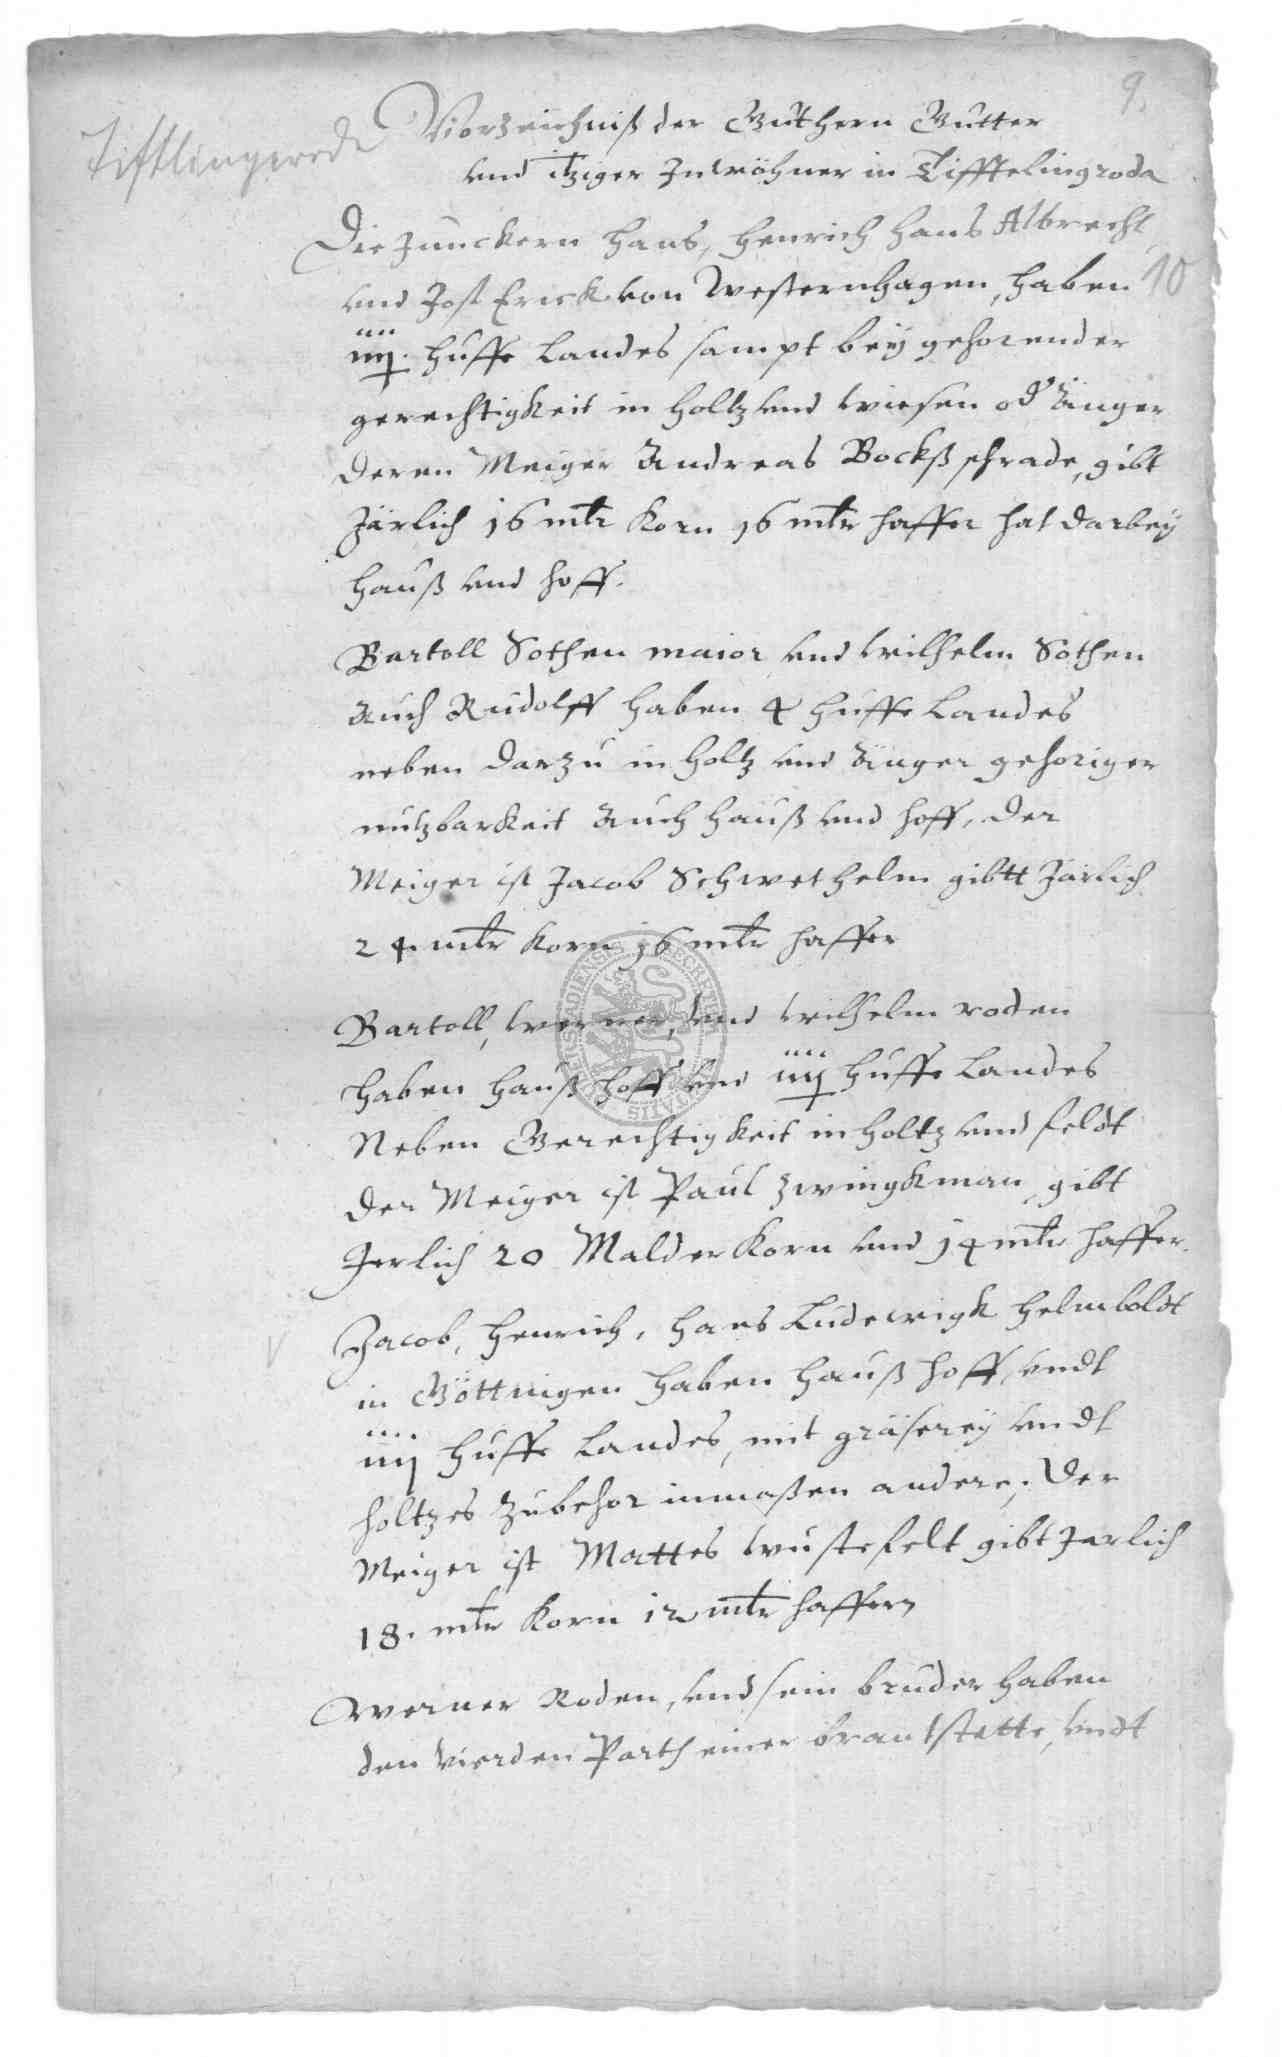 9.
Tiftlingerode
Vorzeichniß der Guthern Gutter
vnd itziger Inwöhner in Tifftelingroda
Die Junckern Hans, Henrich Hans Albrecht
vnd Jost Erick von Westernhagen, haben
10
iiij. Huffe Landes sampt bey gehorender
gerechtigkeit in Holtz vnd wiesen od Änger
deren Meiger Andreas Bockß schrade, gibt
Järlich 16 mtr Korn 16 mtr haffer hat darbey
Hauß vnd hoff.
Bartoll Sothen maior vnd wilhelm Sothen
auch Rudolff haben 4 Huffe Landes
neben darzu in Holtz vnd Änger gehoriger
nutzbarkeit auch Hauß vnd hoff, der
Meiger ist Jacob Schwethelm gibtt Järlich
24 mtr Korn 16 mtr haffer
Bartoll, werner, vnd wilhelm roden
haben Hauß hoff vnd iiij Huffe Landes
Neben Gerechtigkeit in Holtz vnd feldt
der Meiger ist Paul Zwingkman gibt
Jerlich 20 Malder Korn vnd 14 mtr haffer.
Jacob, Henrich, Hans Ludewigk Helmboldt
in Göttingen haben Hauß hoff, vndt
iiij Huffe Landes, mit gräserey vndt
holtzes zubehor inmaßen andere, der
Meiger ist Mattes wustefelt gibt Jarlich
18. mtr Korn 12 mtr haffern
Werner Roden, vnd sein bruder haben
den vierden Parth einer brantstette, vndt